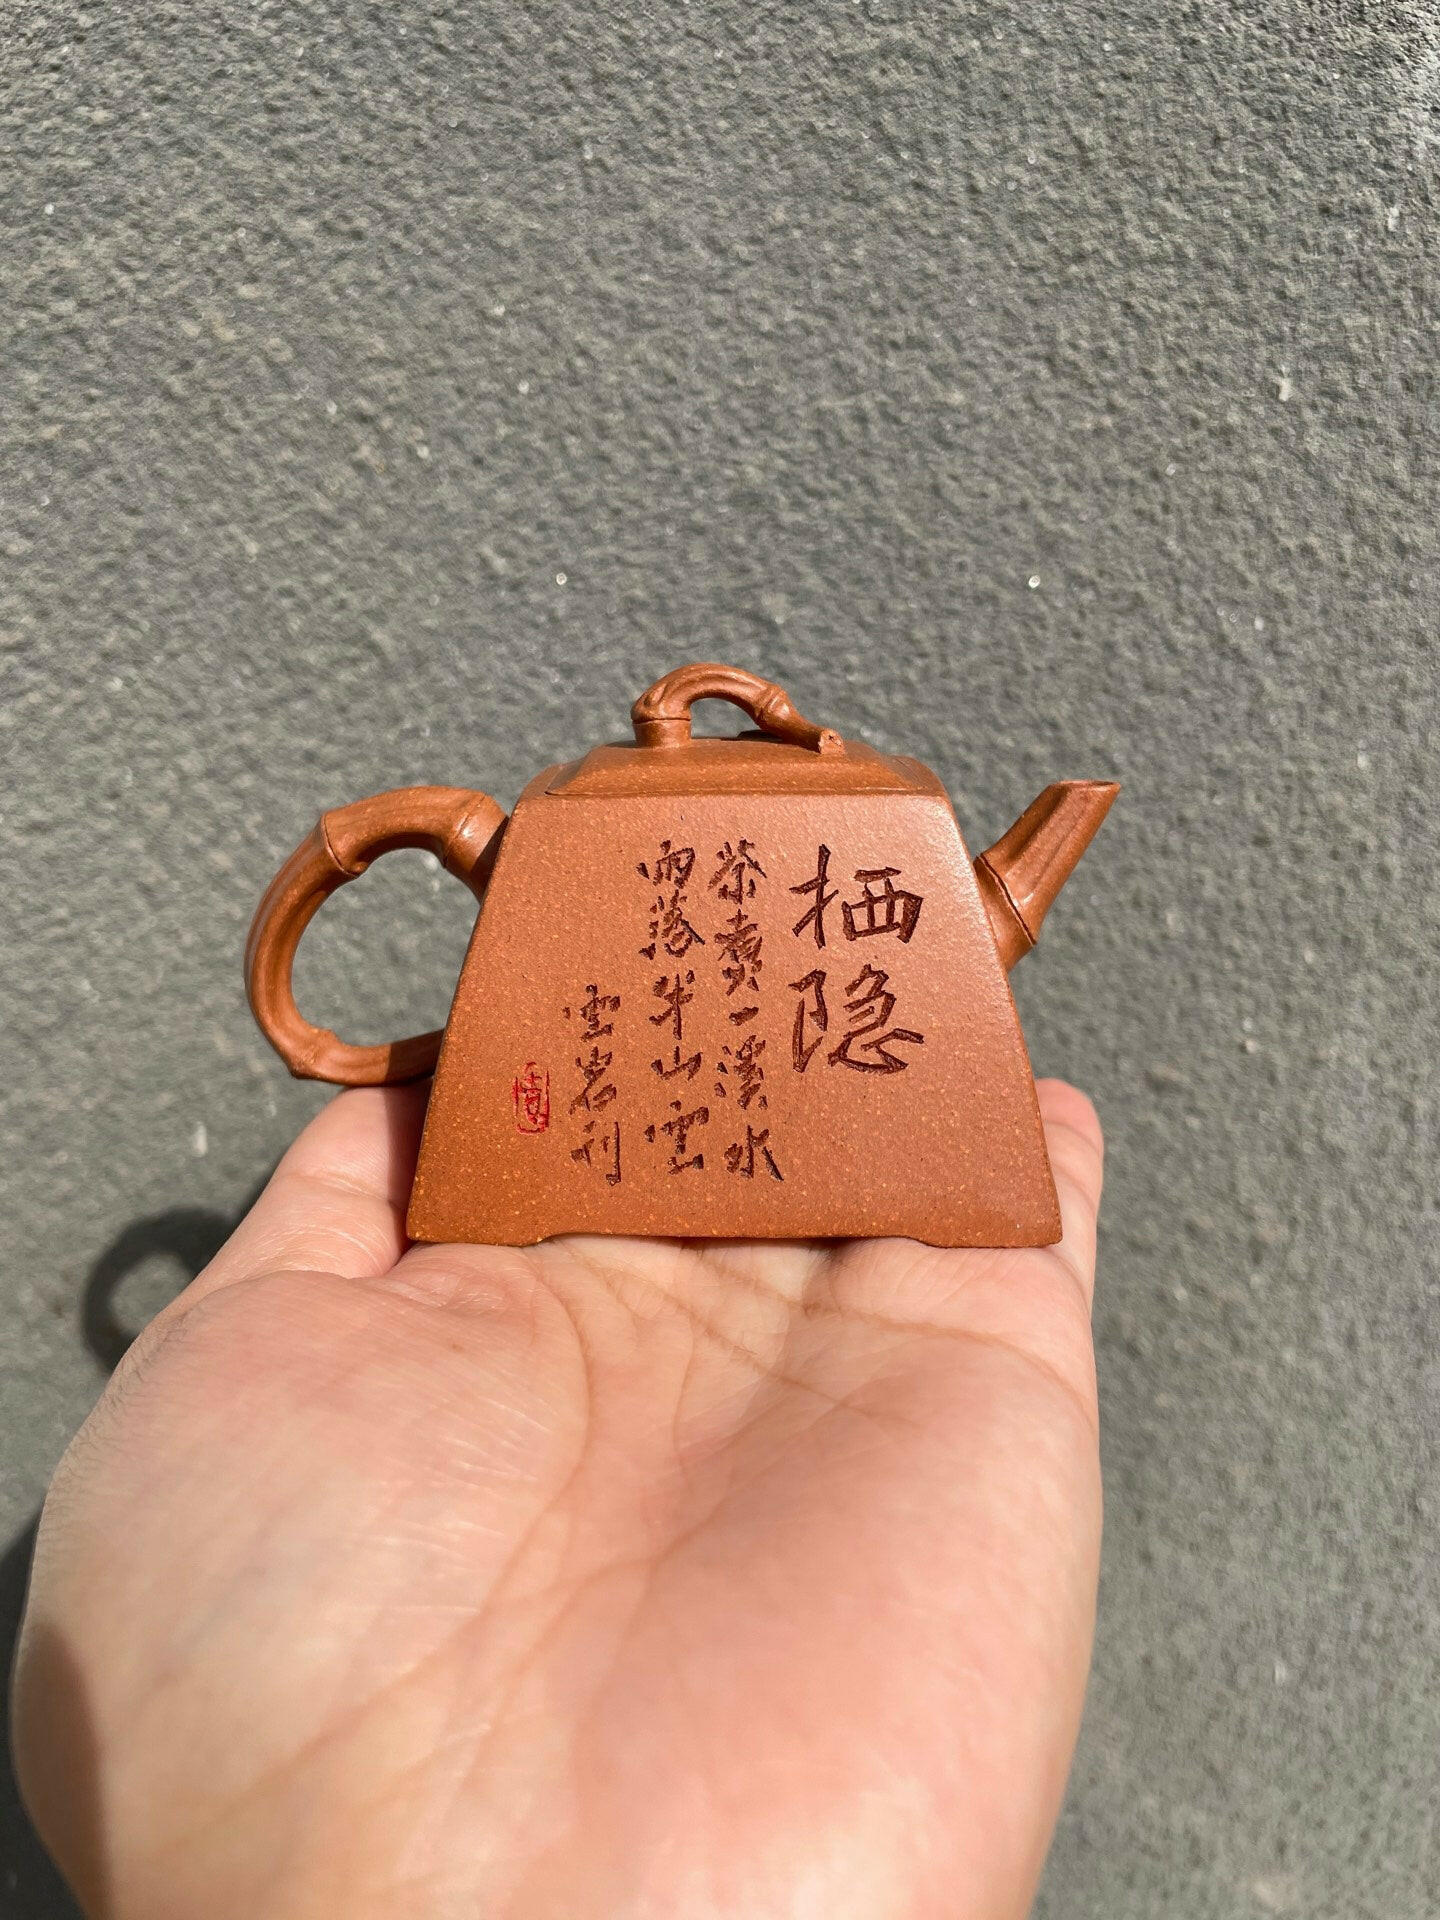 栖隐
茶煮一溪水
雨落半山雲
雲岩刊